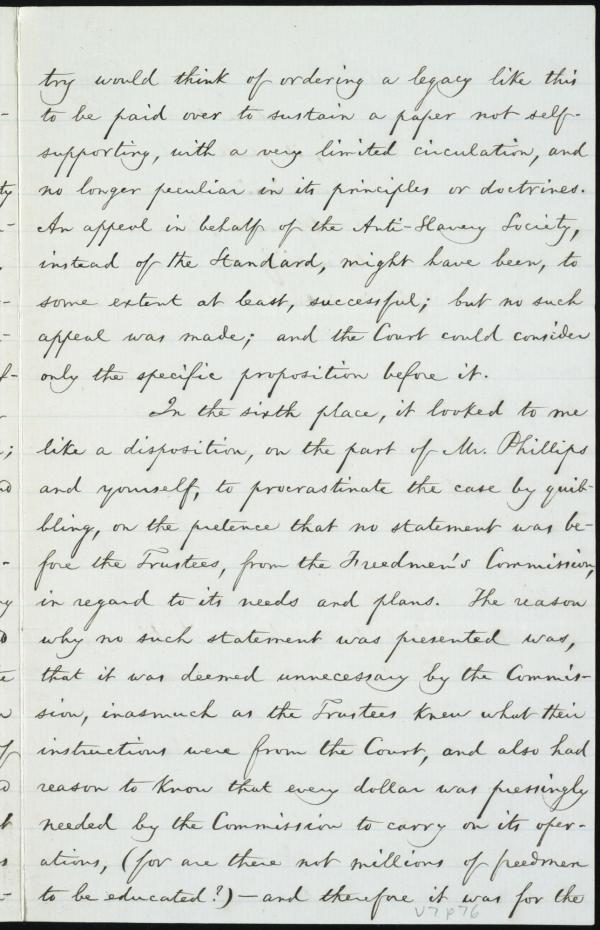 try would think of ordering a legacy like this
to be paid over to sustain a paper not self-
supporting, with a very limited circulation, and
no longer peculiar in its principles or doctrines.
An appeal in behalf of the Anti-Slavery Society,
instead of the Standard, might have been, to
some extent at least, successful; but no such
appeal was made; and the Court could consider
only the specific proposition before it.
In the sixth place, it looked to me
like a disposition, on the part of Mr. Phillips
and yourself, to procrastinate the case by quib-
bling, on the pretence that no statement was be-
fore the Trustees, from the Freedmen's Commission,
in regard to its needs and plans. The reason
why no such statement was presented was,
that it was deemed unnecessary by the Commis-
sion, inasmuch as the Trustees knew what their
instructions were from the Court, and also had
reason to know that every dollar was pressingly
needed by the Commission to carry on its oper-
ations, (for are there not millions of freedmen
to be educated?) — and therefore it was for the
V7 p76